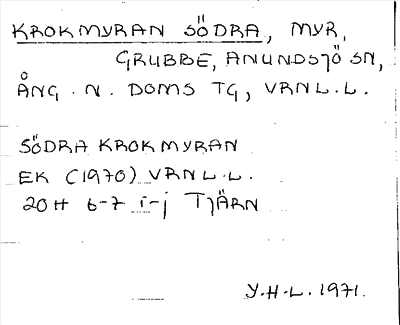 KROKMYRAN SÖDRA, MYR,
GRUBBE, ANUNDSJÖ SN,
ÅNG. N. DOMS TG, VRNL.L.
SÖDRA KROKMYRAN
EK (1970) VRNL.L.
20H 6-7 i-j TJÄRN
Y.H-L. 1971.